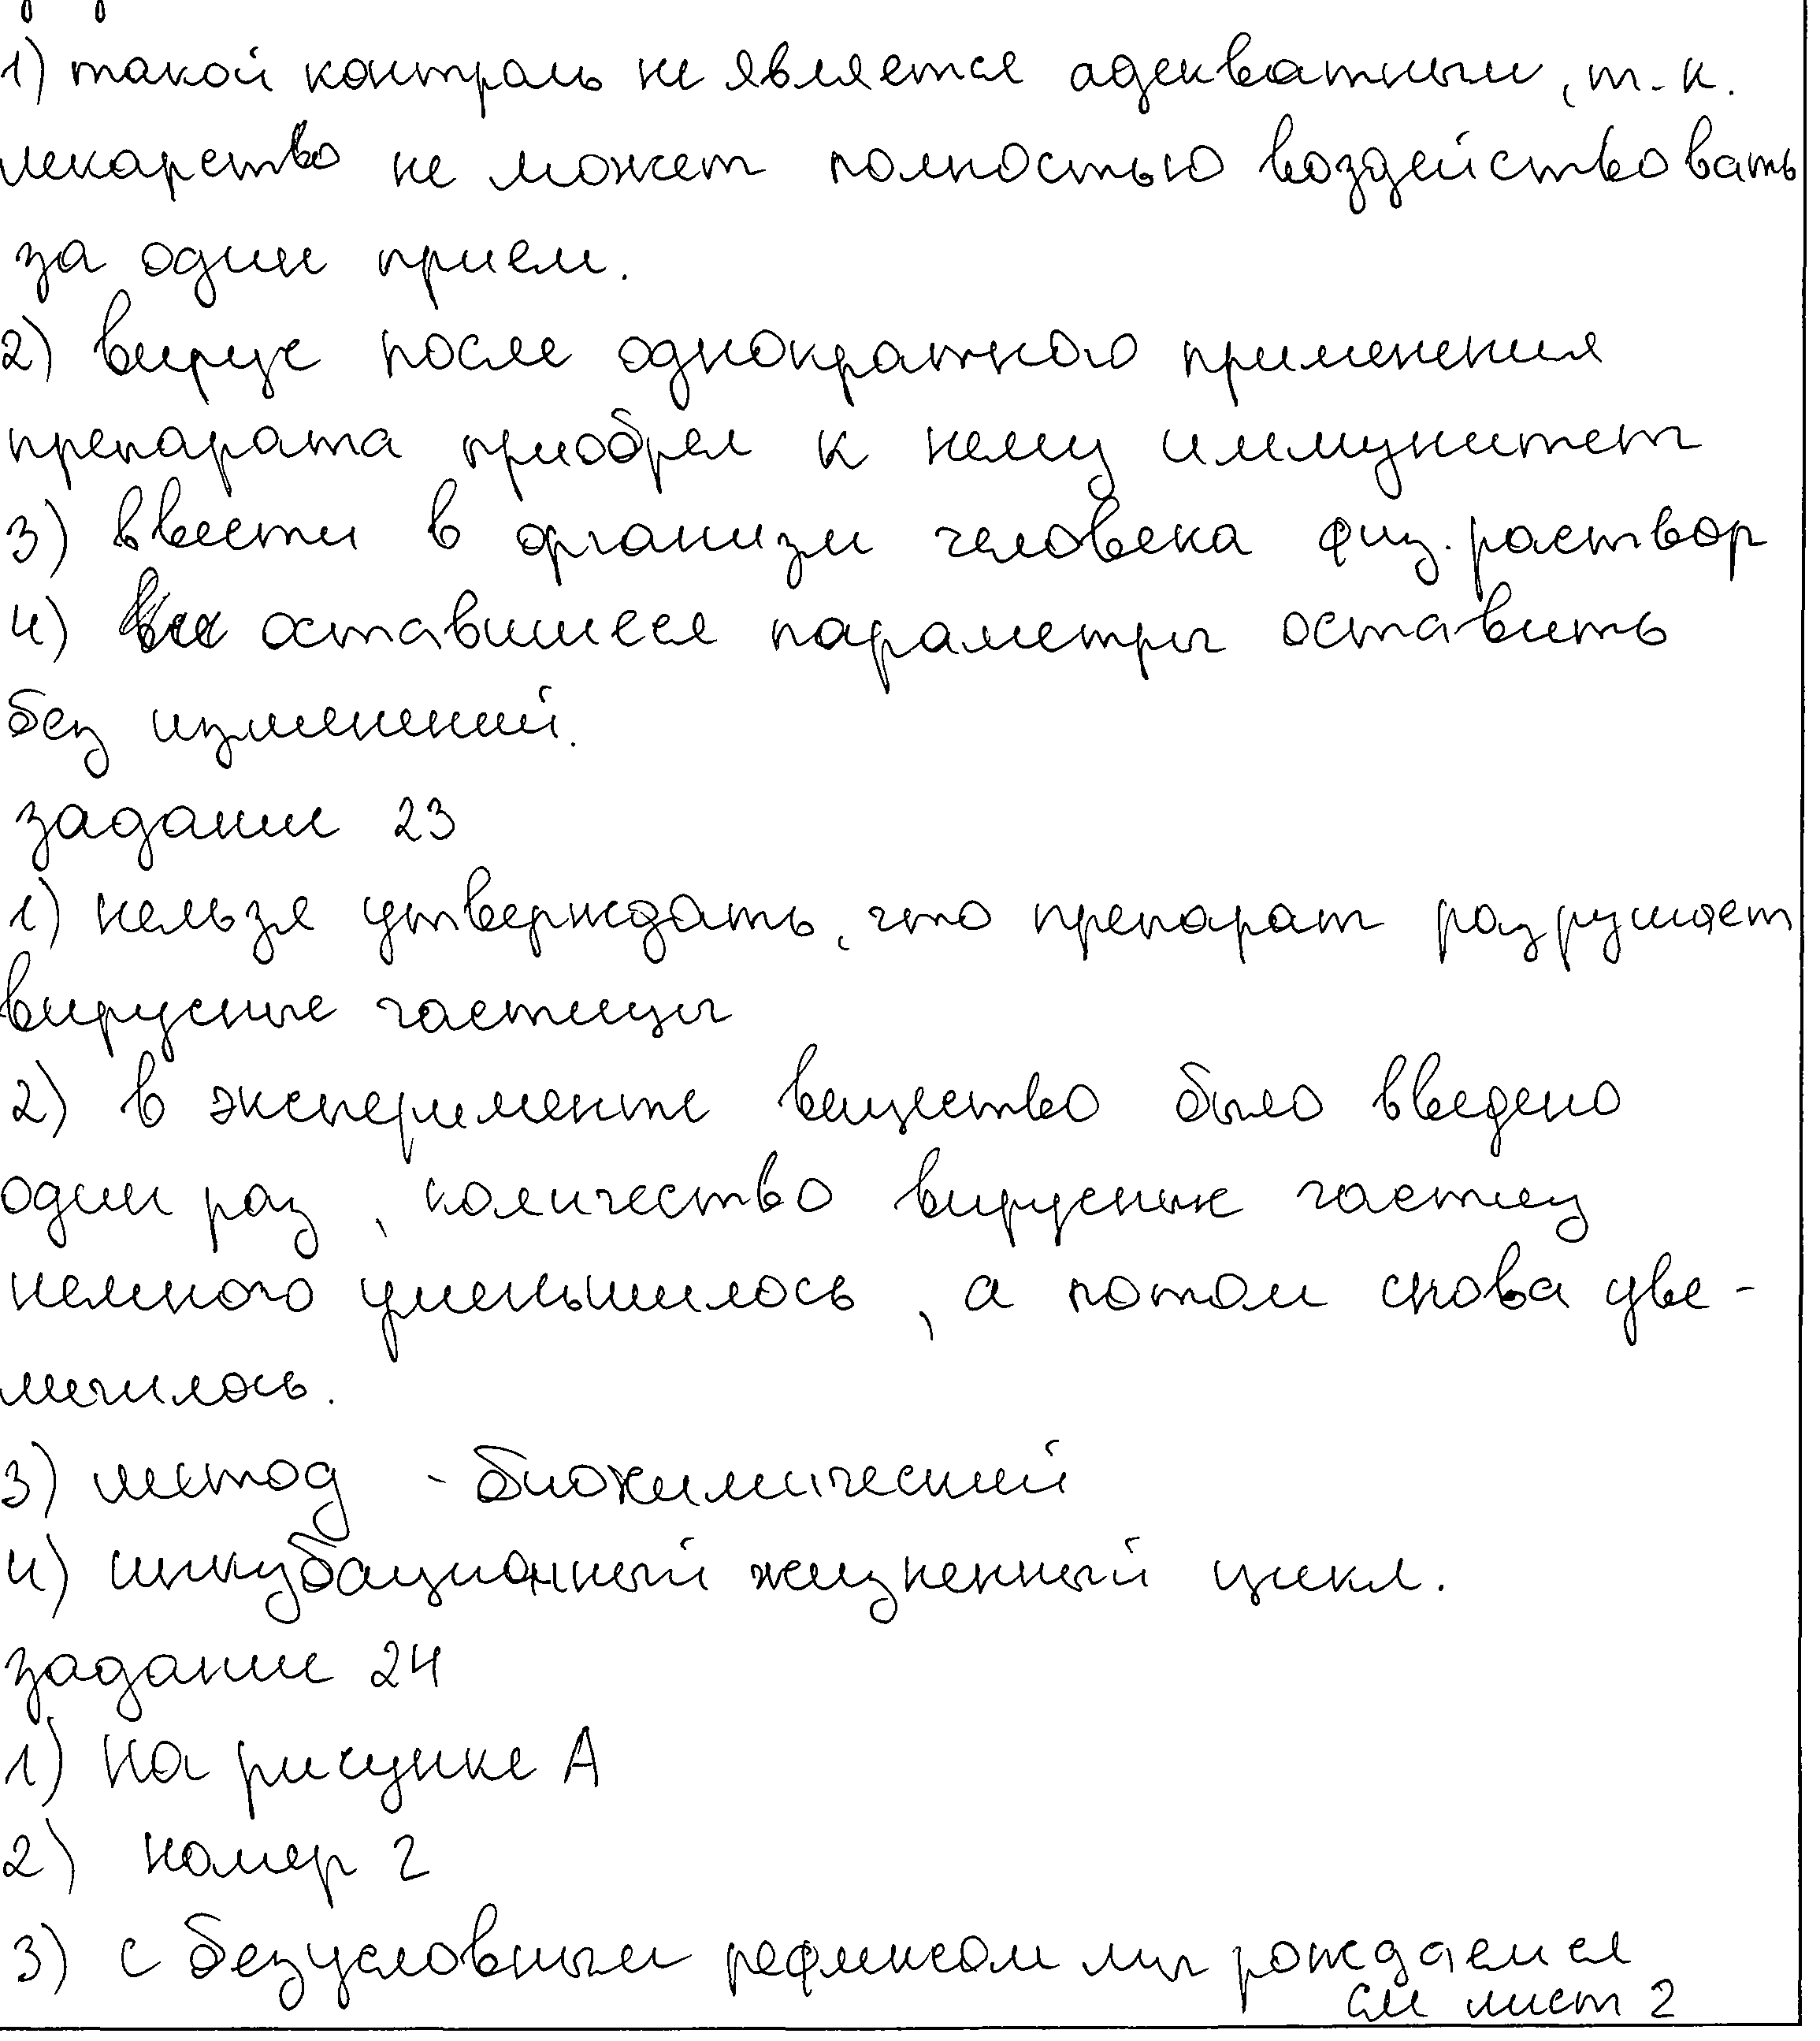 1) такой контроль не является адекватным, т.к.
лекарство не может полностью воздействовать
за один прием.
2) вирус после однократного применения
препарата приобрел к нему иммунитет
3) ввести в организм человека физ. раствор
4) оставшиеся параметры оставить
без изменений.
задание 23
1) нельзя утверждать, что препарат разрушает
вирусные частицы
2) в эксперименте вещество было введено
один раз, количество вирусных частиц
немного уменьшилось, а потом снова уве-
личилось.
3) метод - биохимический
4) инкубационный жизненный цикл.
задание 24
1) на рисунке А
2) номер 2
3) с безусловным рефлексом мы рождаемся
см лист 2